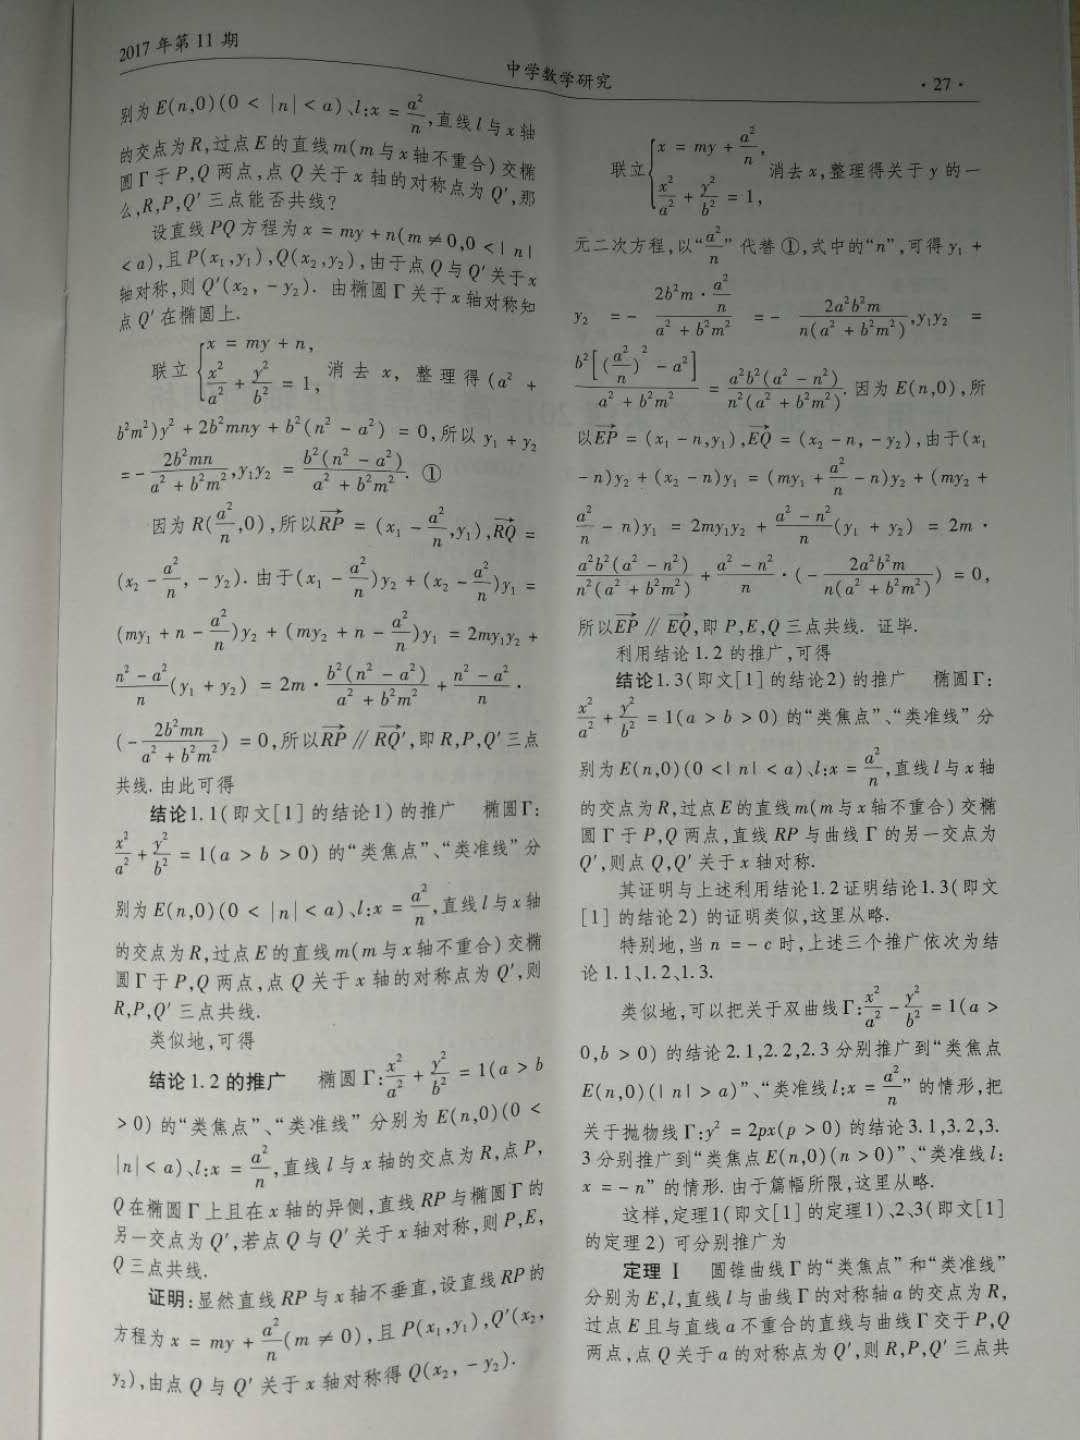 2017 年第 11 期
中学数学研究
· 27 ·
别为 E(n,0)(0 < |n| < a)、l:x = a²/n,直线 l 与 x 轴
的交点为 R,过点 E 的直线 m(m 与 x 轴不重合) 交椭
圆 Γ 于 P,Q 两点,点 Q 关于 x 轴的对称点为 Q′,那
么,R,P,Q′ 三点能否共线?
设直线 PQ 方程为 x = my + n(m ≠ 0,0 < | n |
< a),且 P(x₁,y₁),Q(x₂,y₂),由于点 Q 与 Q′ 关于 x
轴对称,则 Q′(x₂, - y₂). 由椭圆 Γ 关于 x 轴对称知
点 Q′ 在椭圆上.
联立 { x = my + n, x²/a² + y²/b² = 1, 消去 x, 整理得 (a² +
b²m²)y² + 2b²mny + b²(n² - a²) = 0,所以 y₁ + y₂
= - 2b²mn/(a² + b²m²),y₁y₂ = b²(n² - a²)/(a² + b²m²). ①
因为 R(a²/n,0),所以 RP→ = (x₁ - a²/n,y₁),RQ→ =
(x₂ - a²/n, - y₂). 由于(x₁ - a²/n)y₂ + (x₂ - a²/n)y₁ =
(my₁ + n - a²/n)y₂ + (my₂ + n - a²/n)y₁ = 2my₁y₂ +
(n² - a²)/n (y₁ + y₂) = 2m · b²(n² - a²)/(a² + b²m²) + (n² - a²)/n ·
(- 2b²mn/(a² + b²m²)) = 0,所以 RP→ ∥ RQ′→,即 R,P,Q′ 三点
共线. 由此可得
结论1.1(即文[1] 的结论1) 的推广 椭圆 Γ:
x²/a² + y²/b² = 1(a > b > 0) 的“类焦点”、“类准线” 分
别为 E(n,0)(0 < |n| < a)、l:x = a²/n,直线 l 与 x 轴
的交点为 R,过点 E 的直线 m(m 与 x 轴不重合) 交椭
圆 Γ 于 P,Q 两点,点 Q 关于 x 轴的对称点为 Q′,则
R,P,Q′ 三点共线.
类似地,可得
结论1.2 的推广 椭圆 Γ:x²/a² + y²/b² = 1(a > b
> 0) 的“类焦点”、“类准线” 分别为 E(n,0)(0 <
|n| < a)、l:x = a²/n,直线 l 与 x 轴的交点为 R,点 P,
Q 在椭圆 Γ 上且在 x 轴的异侧,直线 RP 与椭圆 Γ 的
另一交点为 Q′,若点 Q 与 Q′ 关于 x 轴对称,则 P,E,
Q 三点共线.
证明:显然直线 RP 与 x 轴不垂直,设直线 RP 的
方程为 x = my + a²/n(m ≠ 0),且 P(x₁,y₁),Q′(x₂,
y₂),由点 Q 与 Q′ 关于 x 轴对称得 Q(x₂, - y₂).
联立 { x = my + a²/n, x²/a² + y²/b² = 1, 消去 x,整理得关于 y 的一
元二次方程,以“a²/n” 代替 ①,式中的“n”,可得 y₁ +
y₂ = - (2b²m · a²/n)/(a² + b²m²) = - 2a²b²m/(n(a² + b²m²)),y₁y₂ =
b²[(a²/n)² - a²]/(a² + b²m²) = a²b²(a² - n²)/(n²(a² + b²m²)). 因为 E(n,0),所
以 EP→ = (x₁ - n,y₁),EQ→ = (x₂ - n, - y₂),由于(x₁
- n)y₂ + (x₂ - n)y₁ = (my₁ + a²/n - n)y₂ + (my₂ +
a²/n - n)y₁ = 2my₁y₂ + (a² - n²)/n (y₁ + y₂) = 2m ·
a²b²(a² - n²)/(n²(a² + b²m²)) + (a² - n²)/n · (- 2a²b²m/(n(a² + b²m²))) = 0,
所以 EP→ ∥ EQ→,即 P,E,Q 三点共线. 证毕.
利用结论 1.2 的推广,可得
结论1.3(即文[1] 的结论2) 的推广 椭圆 Γ:
x²/a² + y²/b² = 1(a > b > 0) 的“类焦点”、“类准线” 分
别为 E(n,0)(0 <| n| < a)、l:x = a²/n,直线 l 与 x 轴
的交点为 R,过点 E 的直线 m(m 与 x 轴不重合) 交椭
圆 Γ 于 P,Q 两点,直线 RP 与曲线 Γ 的另一交点为
Q′,则点 Q,Q′ 关于 x 轴对称.
其证明与上述利用结论1.2 证明结论1.3(即文
[1] 的结论 2) 的证明类似,这里从略.
特别地,当 n = - c 时,上述三个推广依次为结
论 1.1、1.2、1.3.
类似地,可以把关于双曲线 Γ:x²/a² - y²/b² = 1(a >
0,b > 0) 的结论 2.1,2.2,2.3 分别推广到“类焦点
E(n,0)(| n| > a)”、“类准线 l:x = a²/n” 的情形,把
关于抛物线 Γ:y² = 2px(p > 0) 的结论 3.1,3.2,3.
3 分别推广到“类焦点 E(n,0)(n > 0)”、“类准线 l:
x = - n” 的情形. 由于篇幅所限,这里从略.
这样,定理1(即文[1] 的定理1)、2、3(即文[1]
的定理 2) 可分别推广为
定理 Ⅰ 圆锥曲线 Γ 的“类焦点” 和“类准线”
分别为 E,l,直线 l 与曲线 Γ 的对称轴 a 的交点为 R,
过点 E 且与直线 a 不重合的直线与曲线 Γ 交于 P,Q
两点,点 Q 关于 a 的对称点为 Q′,则 R,P,Q′ 三点共